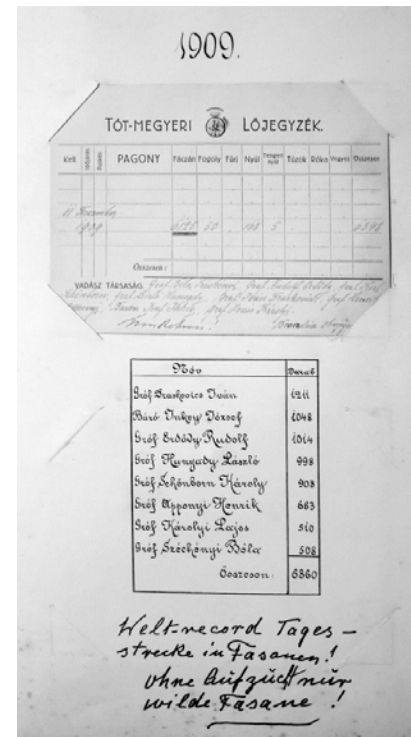 1909.
TÓT-MEGYERI LŐJEGYZÉK.
Kelt PAGONY Fáczán Fogoly Fürj Nyúl Tengeri nyúl Túzok Róka Vegyes Összesen
11 Dezember
1909 50 5
Összesen:
VADÁSZ TÁRSASÁG.
Név Darab
Gróf Draskovics Iván 1211
Báró Inkey József 1048
Gróf Erdődy Rudolf 1014
Gróf Hunyady László 998
Gróf Schönborn Károly 908
Gróf Apponyi Henrik 663
Gróf Károlyi Lajos 510
Gróf Széchényi Béla 508
Összesen: 6860
Welt-record Tages-
strecke in Fasanen!
ohne Aufzucht nur
wilde Fasane!